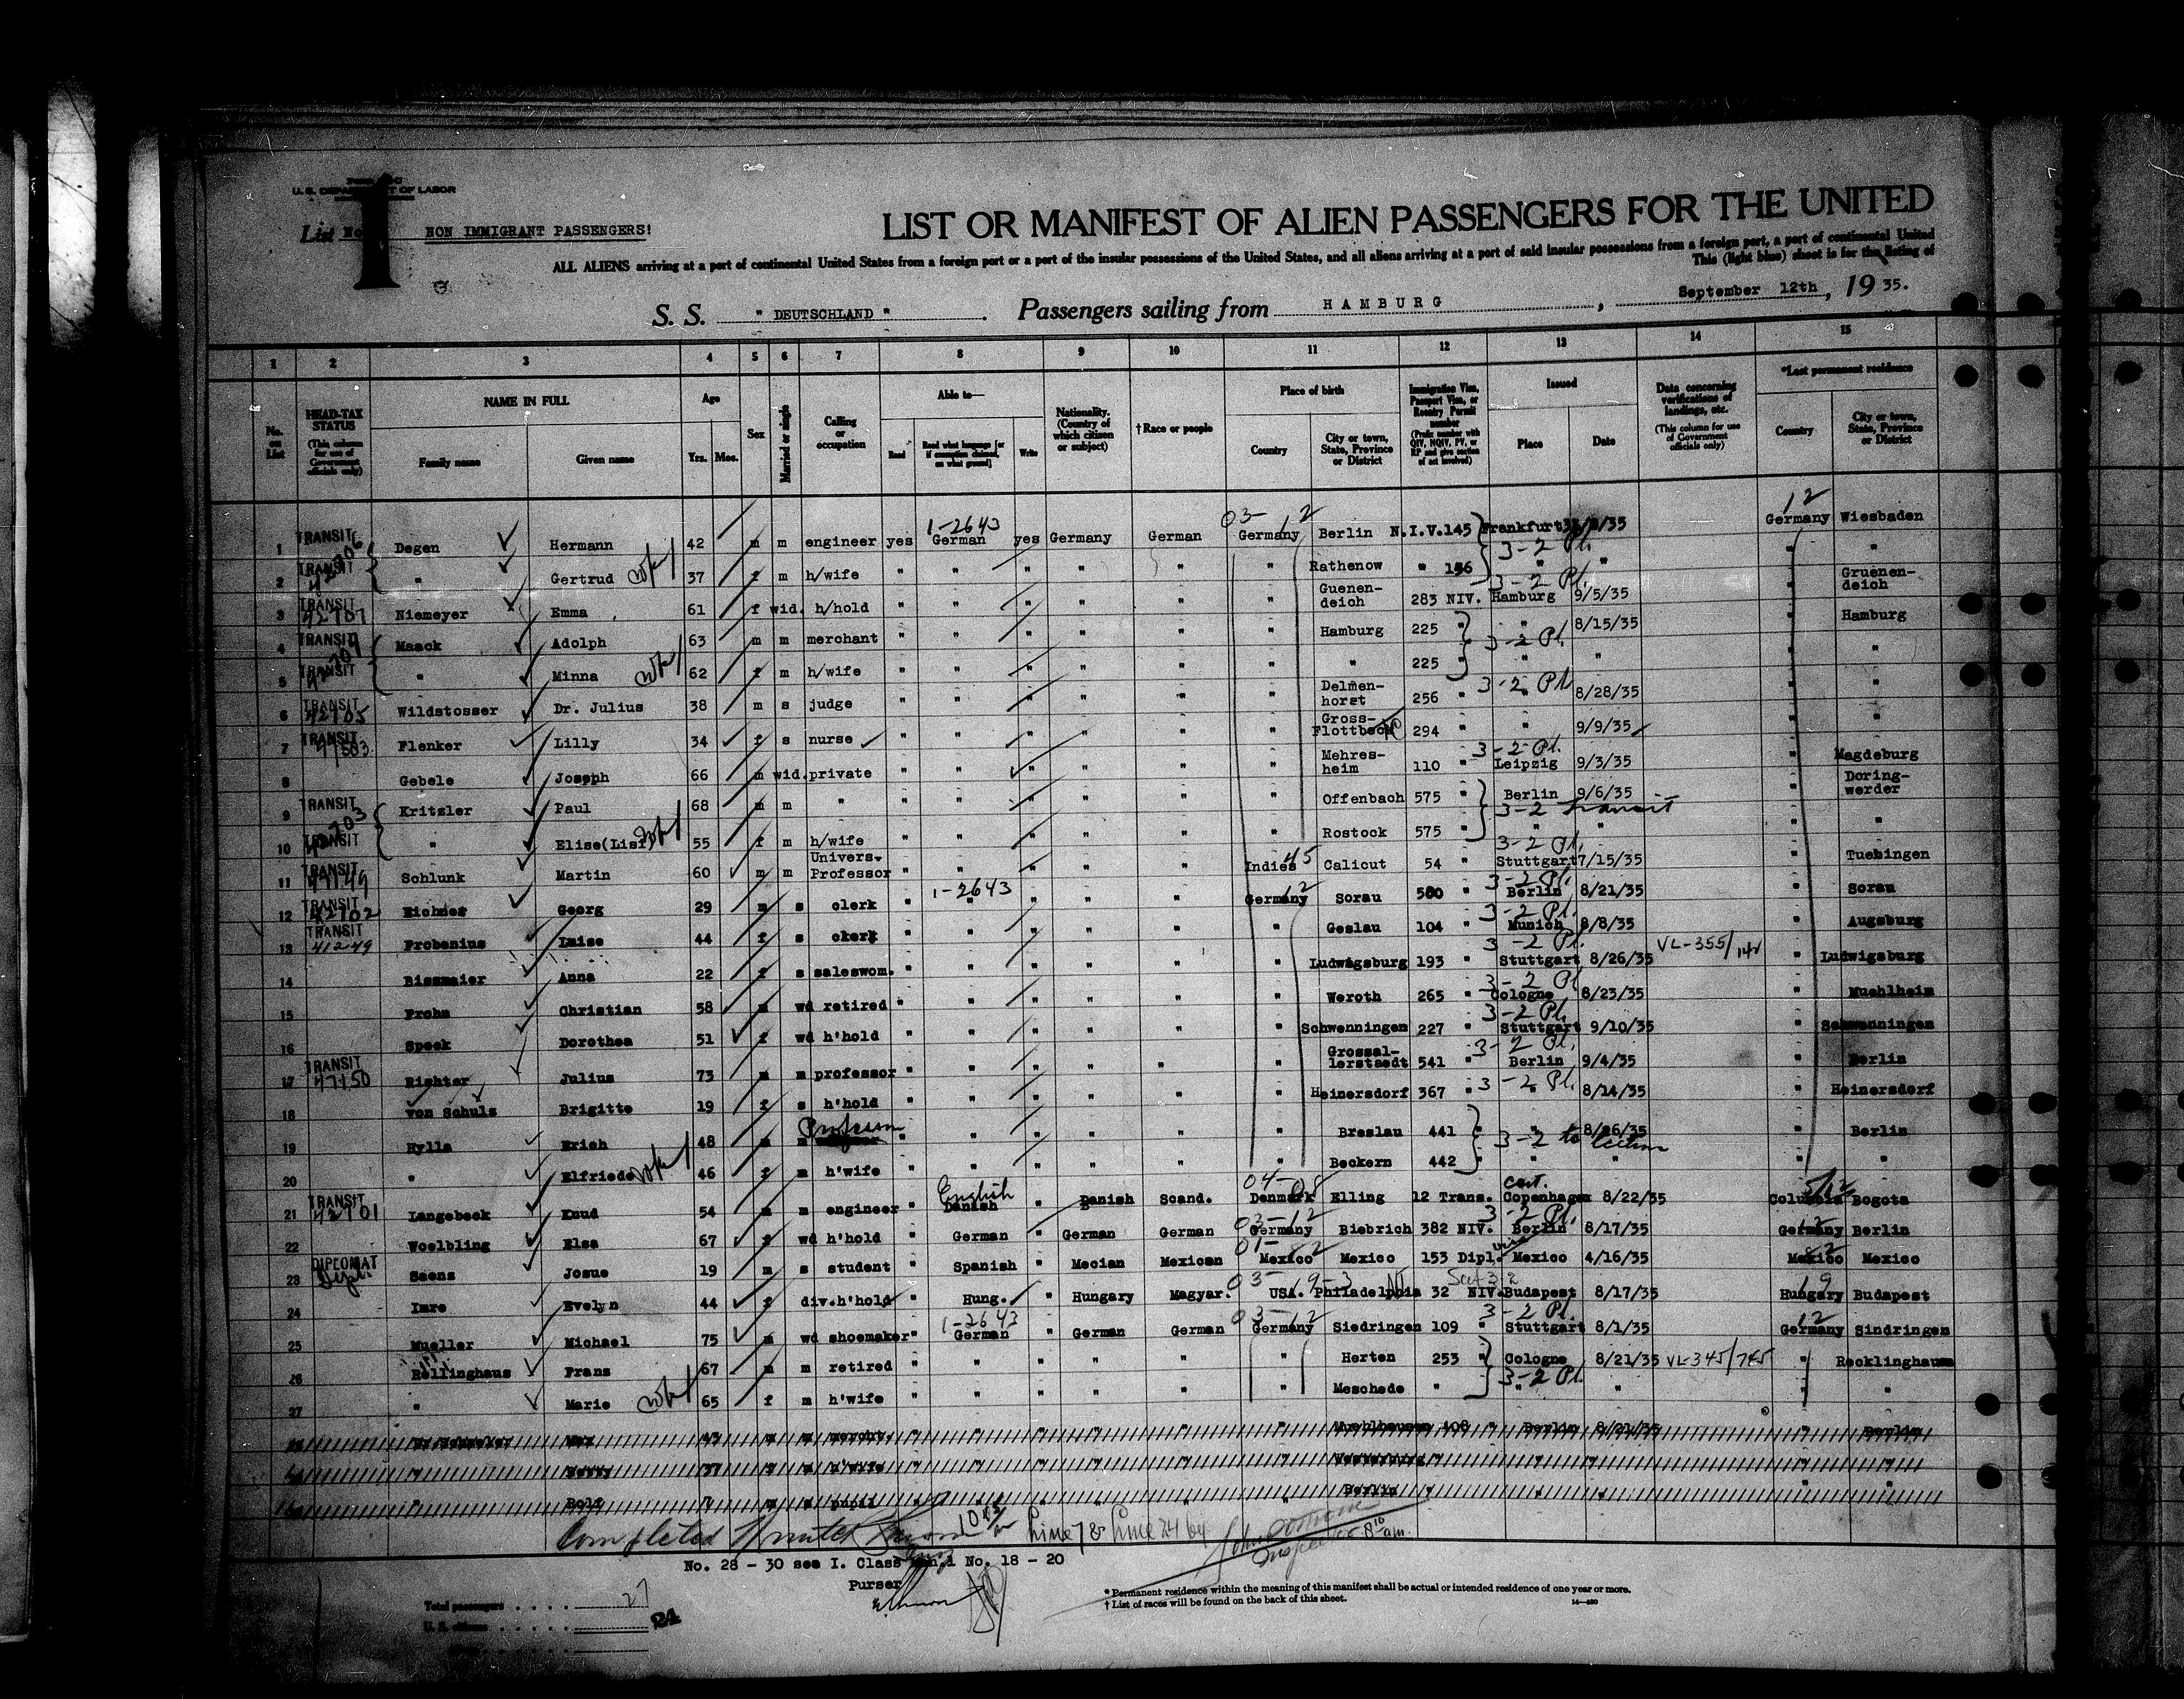 U. S. DEPARTMENT OF LABOR
List No. I NON IMMIGRANT PASSENGERS!
LIST OR MANIFEST OF ALIEN PASSENGERS FOR THE UNITED
ALL ALIENS arriving at a port of continental United States from a foreign port or a port of the insular possessions of the United States, and all aliens arriving at a port of said insular possessions from a foreign port, a port of continental United
This (light blue) sheet is for the listing of
S. S. " DEUTSCHLAND " . Passengers sailing from HAMBURG , September 12th, 19 35.
1 2 3 4 5 6 7 8 9 10 11 12 13 14 15
No. on List
HEAD-TAX STATUS (This column for use of Government officials only)
NAME IN FULL Family name Given name
Age Yrs. Mos.
Sex
Married or single
Calling or occupation
Able to— Read Read what language [or if exemption claimed, on what ground] Write
Nationality. (Country of which citizen or subject)
†Race or people
Place of birth Country City or town, State, Province or District
Immigration Visa, Passport Visa, or Reentry Permit number (Prefix number with QIV, NQIV, PV, or RP and give section of act involved)
Issued Place Date
Data concerning verifications of landings, etc. (This column for use of Government officials only)
*Last permanent residence Country City or town, State, Province or District
1-2643 03- 12 12
1 TRANSIT Degen Hermann 42 m m engineer yes German yes Germany German Germany Berlin N.I.V.145 Frankfurt /35 Germany Wiesbaden
3-2 Pl.
2 TRANSIT " Gertrud 37 f m h/wife " " " " " " Rathenow " 156 " " " "
3-2 Pl.
3 TRANSIT 42707 Niemeyer Emma 61 f wid. h/hold " " " " " " Guenen-deich 283 NIV. Hamburg 9/5/35 " Gruenen-deich
4 TRANSIT Maack Adolph 63 m m merchant " " " " " " Hamburg 225 " " 8/15/35 " Hamburg
3-2 Pl.
5 TRANSIT " Minna 62 f m h/wife " " " " " " " 225 " " " " "
3-2 Pl
6 TRANSIT 42705 Wildstosser Dr. Julius 38 m s judge " " " " " " Delmen-horst 256 " " 8/28/35 " "
7 TRANSIT Flenker Lilly 34 f s nurse " " " " " " Gross-Flottbeck 294 " " 9/9/35 " "
3-2 Pl.
8 Gebele Joseph 66 m wid. private " " " " " " Mehres-heim 110 " Leipzig 9/3/35 " Magdeburg
9 TRANSIT Kritzler Paul 68 m m " " " " " " " Offenbach 575 " Berlin 9/6/35 " Doring-werder
3-2 transit
10 TRANSIT Elise(Lisi) 55 f m h/wife " " " " " " Rostock 575 " " " " "
3-2 Pl.
11 TRANSIT 47149 Schlunk Martin 60 m m Univers.-Professor " " " " " Indies 45 Calicut 54 " Stuttgart 7/15/35 " Tuebingen
1-2643 12 3-2 Pl.
12 TRANSIT 42702 Georg 29 m s clerk " " " " " Germany Sorau 500 " Berlin 8/21/35 " Sorau
3-2 Pl.
13 TRANSIT 41249 Frobenius Luise 44 f s clerk " " " " " " Geslau 104 " Munich 8/8/35 " Augsburg
3-2 Pl. VL-355/
14 Bissmaier Anna 22 f s saleswom. " " " " " " Ludwigsburg 193 " Stuttgart 8/26/35 " Ludwigsburg
3-2 Pl
15 Frohn Christian 58 m wd retired " " " " " " Weroth 265 " Cologne 8/23/35 " Muehlheim
3-2 Pl.
16 Speck Dorothea 51 f wd h'hold " " " " " " Schwenningen 227 " Stuttgart 9/10/35 " Schwenningen
3-2 Pl.
17 TRANSIT 47150 Richter Julius 73 m m professor " " " " " " Grossal-lerstaedt 541 " Berlin 9/4/35 " Berlin
3-2 Pl.
18 von Schulz Brigitte 19 f s h'hold " " " " " " Heinersdorf 367 " " 8/14/35 " Heinersdorf
Professor
19 Hylla Erich 48 m m " " " " " " Breslau 441 " " 8/26/35 " Berlin
3-2 to
20 " Elfriede 46 f m h'wife " " " " " " Beckern 442 " " " "
English 04-08
21 TRANSIT 42701 Langebeck Knud 54 m m engineer " Danish " Danish Scand. Denmark Elling 12 Trans. cert. Copenhagen 8/22/35 Columbia Bogota
03-12 3-2 Pl. 12
22 Woelbling Elsa 67 f wd h'hold " German " German German Germany Biebrich 382 NIV. Berlin 8/17/35 Germany Berlin
23 DIPLOMAT Saens Josue 19 m s student " Spanish " Mecian Mexican Mexico Mexico 153 Dipl. visa Mexico 4/16/35 Mexico Mexico
03- 9-3 Sec 3-2 19
24 Imre Evelyn 44 f div. h'hold " Hung. " Hungary Magyar. USA. Philadelphia 32 NIV. Budapest 8/17/35 Hungary Budapest
1-2643 03-12 3-2 Pl. 12
25 Mueller Michael 75 m wd shoemaker " German " German German Germany Siedringen 109 " Stuttgart 8/1/35 Germany Sindringen
26 Rellinghaus Frans 67 m m retired " " " " " " Herten 253 " Cologne 8/21/35 VL-345/745 " Recklinghausen
3-2 Pl.
27 " Marie 65 f m h'wife " " " " " " Meschede " " " " "
Max 43 m m mercht. " " " " " " Muehlhausen 408 " Berlin 8/21/35 " Berlin
" 37 f m h'wife " " " " " "
" Rolf 7 m s pupil " " " " " " Berlin
Completed
Line 7 & Line 24 by
No. 28 - 30 see I. Class No. 18 - 20
Purser
Total passengers . . . . 27
U. S. citizens . . . . .
24
* Permanent residence within the meaning of this manifest shall be actual or intended residence of one year or more.
† List of races will be found on the back of this sheet.